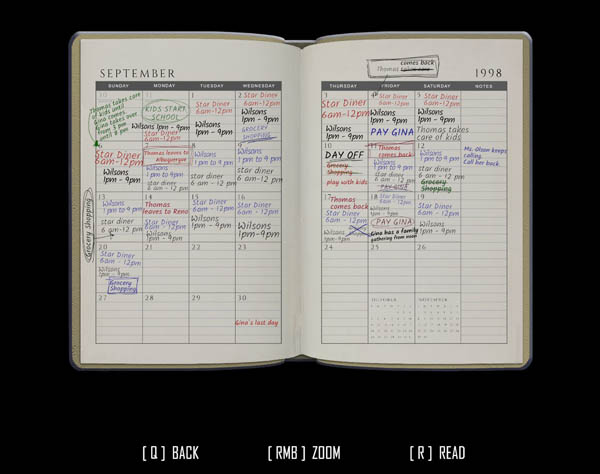 comes back
Thomas
SEPTEMBER
1998
SUNDAY MONDAY TUESDAY WEDNESDAY
THURSDAY FRIDAY SATURDAY NOTES
Thomas takes care
of kids until
Gina comes
Gina takes over
from 3 pm
until 8 pm
KIDS START
SCHOOL
Wilsons 1pm - 9pm
Star Diner
6am-12pm
1
Star Diner
6am-12pm
Wilsons
1pm - 9pm
2 Star Diner
6am-12pm
Wilsons
1pm - 9pm
GROCERY
SHOPPING
3
Star Diner
6am-12pm
Wilsons
1pm - 9pm
Star Diner
6am-12pm
Wilsons
1pm - 9pm
PAY GINA
5
Star Diner
6am-12pm
Wilsons
1pm - 9pm
Thomas takes
care of kids
Star Diner
6am-12pm
Wilsons
1pm - 9pm
7
Thomas leaves to
Albuquerque
Wilsons
1pm to 9pm
star diner
6 am - 12 pm
8
Wilsons
1 pm to 9pm
star diner
6 am - 12 pm
9
Wilsons
1 pm to 9pm
star diner
6 am - 12 pm
10
DAY OFF
Grocery
Shopping
play with kids
11
Thomas
comes back
Wilsons
1pm to 9pm
star diner
6 am - 12 pm
PAY GINA
12
Wilsons
1 pm to 9pm
star diner
6 am - 12 pm
Grocery
Shopping
Ms. Olson keeps
calling.
Call her back.
Grocery Shopping
13
Wilsons
1 pm to 9pm
star diner
6am - 12pm
14
Thomas
leaves to Reno
Star Diner
6am - 12pm
Wilsons
1pm - 9pm
15
Star Diner
6am - 12pm
Wilsons
1pm - 9pm
16
Star Diner
6am - 12pm
Wilsons
1pm-9pm
17
Thomas
comes back
Star Diner
6am - 12pm
Wilsons
1pm - 9pm
18
Star Diner
6am - 12pm
Wilsons
1pm - 9pm
PAY GINA
Gina has a family
gathering from noon
19
Star Diner
6am - 12pm
Wilsons
1pm - 9pm
20
Star Diner
6am - 12pm
Wilsons
1pm - 9pm
Grocery
Shopping
21
22
23
24
25
26
27
28
29
30
Gina's last day
OCTOBER NOVEMBER
[ Q ] BACK [ RMB ] ZOOM [ R ] READ